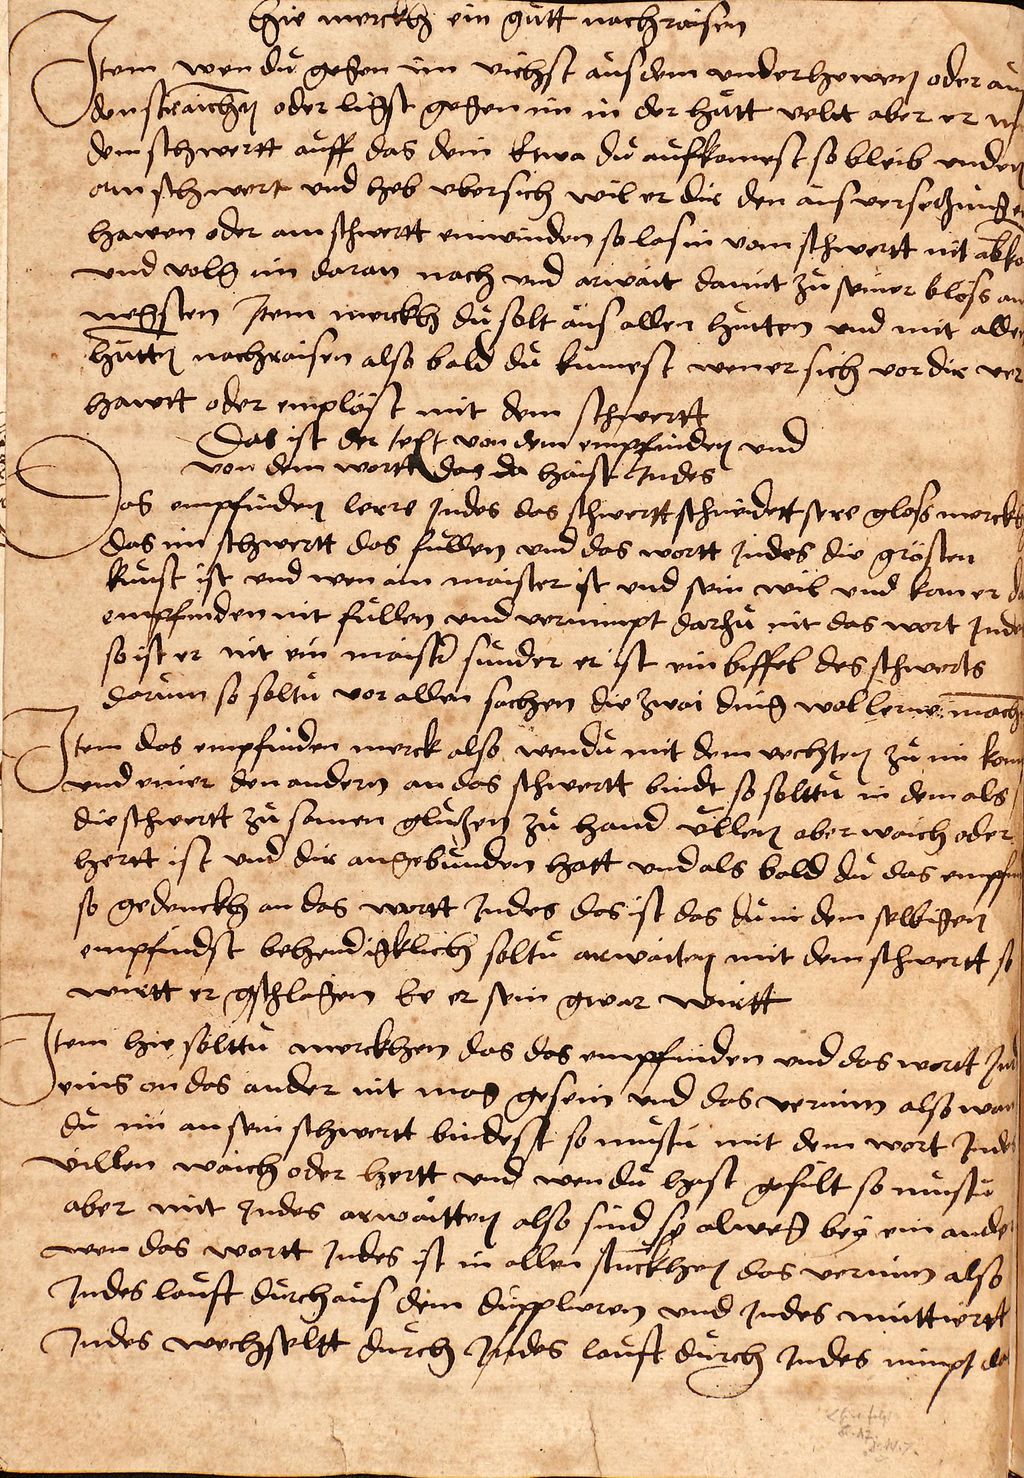 Hie merckh ein gutt nachraisen
Item wen du gegen im vichst aus dem underhewen oder aus
den straichen oder ligst gegen im in der hutt velt aber er mit
dem schwertt auff das dein Ee wa du aufkomest so bleib unden
am schwert und heb ubersich wil er dir den aus versetzung ein
hawen oder am schwertt einwinden so las in vom schwertt nit abko
und volg im daran nach und arwait damit zu seiner blöss am
negsten Item merckh du solt aus allen hutten und mit allen
hutten nachraisen also bald du kumest wen er sich vor dir ver
hawtt oder emplöst mit dem schwertt
Das ist der text von dem empfinden und
von dem wortt das da haist Indes
Das empfinden lerre Indes das schwertt schneidett sere gloss merckh
das im schwertt das fullen und das wortt Indes die grösten
kunst ist und wen ain maister ist und sein wil und kan er da
empfinden nit fullen und vernimpt darzu nit das wort Inde
so ist er nit ein maister sunder er ist ein biffel des schwerts
darum so soltu vor allen sachen die zwai ding wol lerne mach
Item das empfinden merck also wen du mit dem vechten zu im kom
und einer den anderen an das schwertt bindt so solttu in dem als
die schwertt zu samen glutzen zu hand vullen aber waich oder
hertt ist und dir angebunden hatt und als bald du das empfin
so gedenckh an das wortt Indes das ist das du in dem selbigen
empfindst behendigklich soltu arwaiten mit dem schwertt so
wirtt er gschlagen Ee er sein gwar wirtt
Item hie solttu merckhen das das empfinden und das wortt Ind
eins on das ander nit mag gesein und das vernim also wan
du im an sein schwertt bindest so mustu mit dem wort Inde
vullen waich oder hertt und wen du hast gefult so mustu
aber mit Indes arwaitten also sind sy alweg bey ein ander
wen das wortt Indes ist in allen stuckhen das vernim also
Indes lauft durchaus dem dupplieren und Indes muttiertt
Indes wechseltt durch Indes lauft durch Indes nimpt de